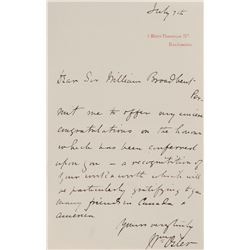 July 7th
Dear Sir William Broadbent
Per-
mit me to offer my sincere
congratulations on the honor
which has been conferred
upon you – a recognition of
your work & worth which will
be particularly gratifying to your
many friends in Canada &
America
Yours very truly
Wm Osler